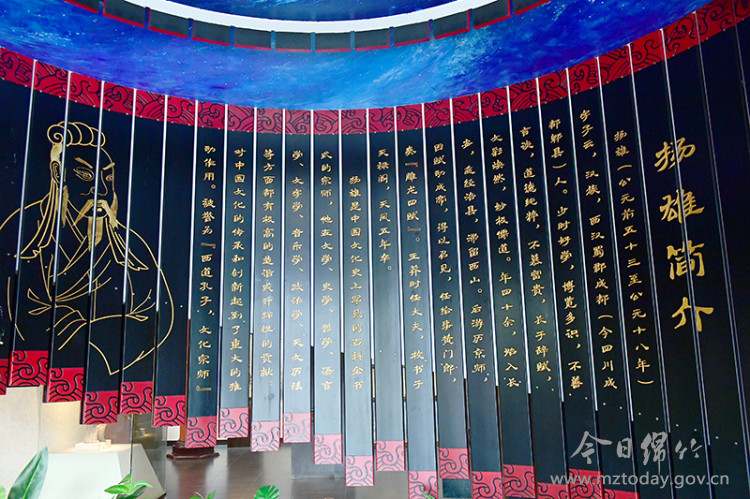 扬雄简介
扬雄(公元前五十三至公元十八年)
字子云，汉族，西汉蜀郡成都(今四川成
都郫县)人。少时好学，博览多识，不善
言谈，道德纯粹，不慕富贵，长于辞赋，
文彩焕然，妙极儒道。年四十余，始入长
安，道经涪县，滞留西山。后游历京师，
因赋动成帝，得以召见，任给事黄门郎，
奏『雕龙四赋』。王莽时任大夫，校书于
天禄阁，天凤五年卒。
扬雄是中国文化史上罕见的百科全书
式的宗师，他在文学、史学、哲学、语言
学、文字学、音乐学、政治学、天文历法
等方面都有极高的造诣或开拓性的贡献
对中国文化的传承和创新起到了重大的推
动作用。被誉为『西道孔子，文化宗师』
今日绵竹
www.mztoday.gov.cn